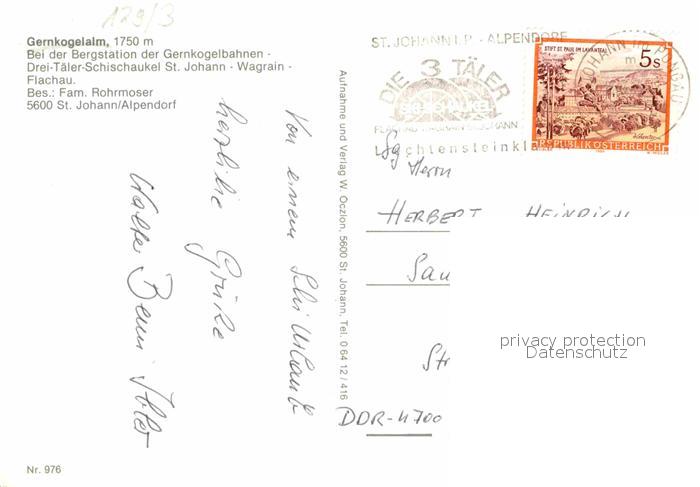 129/3
Gernkogelalm, 1750 m
Bei der Bergstation der Gernkogelbahnen -
Drei-Täler-Schischaukel St. Johann - Wagrain -
Flachau.
Bes.: Fam. Rohrmoser
5600 St. Johann/Alpendorf
Von einem Schiurlaub
herzliche Grüße
Nr. 976
Aufnahme und Verlag W. Oczlon, 5600 St. Johann, Tel. 0 64 12 / 416
ST. JOHANN I. P. - ALPENDORF
DIE 3 TÄLER
Liechtensteinkla
JOHANN IM PONGAU
STIFT ST. PAUL IM LAVANTTAL
5 s
REPUBLIK ÖSTERREICH
Herrn
HERBERT HEINRICH
Sau
Str
DDR-4700
privacy protection
Datenschutz